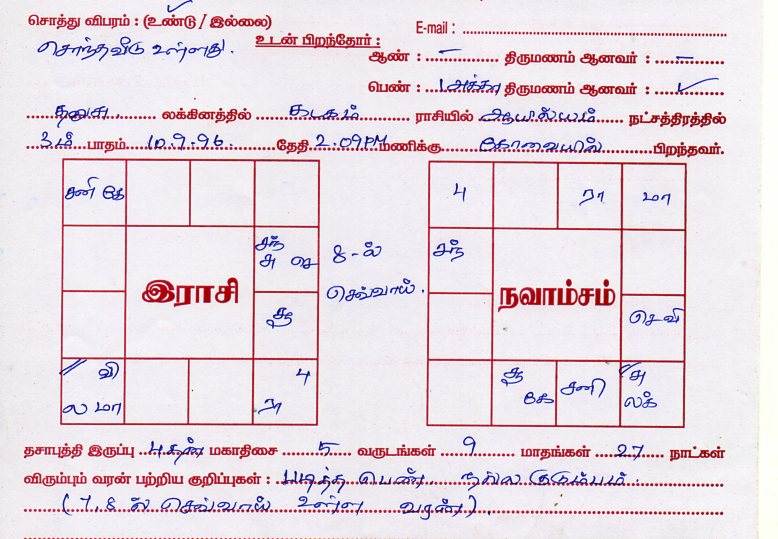 சொத்து விபரம் : (உண்டு / இல்லை)
E-mail :
சொந்தவீடு உள்ளது.
உடன் பிறந்தோர் :
ஆண் : – திருமணம் ஆனவர் : –
பெண் : 1 அக்கா திருமணம் ஆனவர் : ✓
தனுசு லக்கினத்தில் கடகம் ராசியில் ஆயில்யம் நட்சத்திரத்தில்
3ம் பாதம் 10.9.96 தேதி 2.09PM மணிக்கு கோவையில் பிறந்தவர்.
சனி கே
சந்
சு செ
இராசி
சூ
வி
ல மா
பு
ரா
8-ல்
செவ்வாய்.
பு ரா மா
சந்
நவாம்சம்
செ வி
சூ
கே
சனி
சு
லக்
தசாபுத்தி இருப்பு புதன் மகாதிசை 5 வருடங்கள் 9 மாதங்கள் 27 நாட்கள்
விரும்பும் வரன் பற்றிய குறிப்புகள் : படித்த பெண். நல்ல குடும்பம்.
(7, 8 ல் செவ்வாய் உள்ள வரண்).